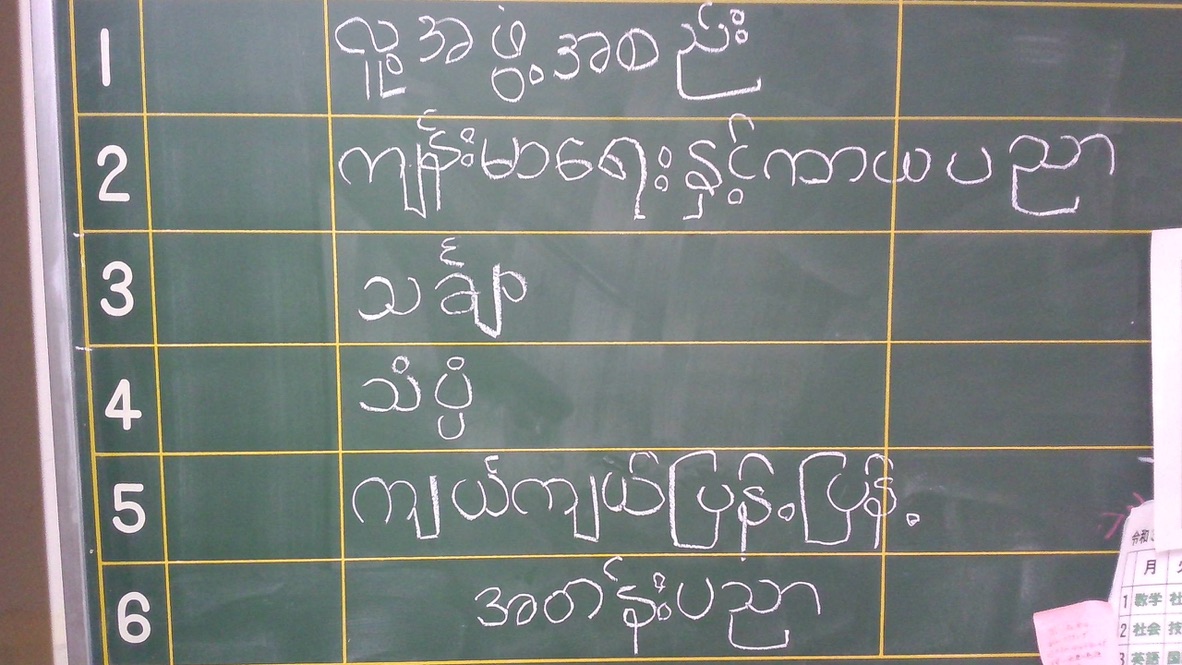 1 လူ့အဖွဲ့အစည်း
2 ကျန်းမာရေးနှင့်ကာယပညာ
3 သင်္ချာ
4 သိပ္ပံ
5 ကျယ်ကျယ်ပြန့်ပြန့်
6 အတန်းပညာ
令和
月
1 数学 社
2 社会 技
3 英語 国